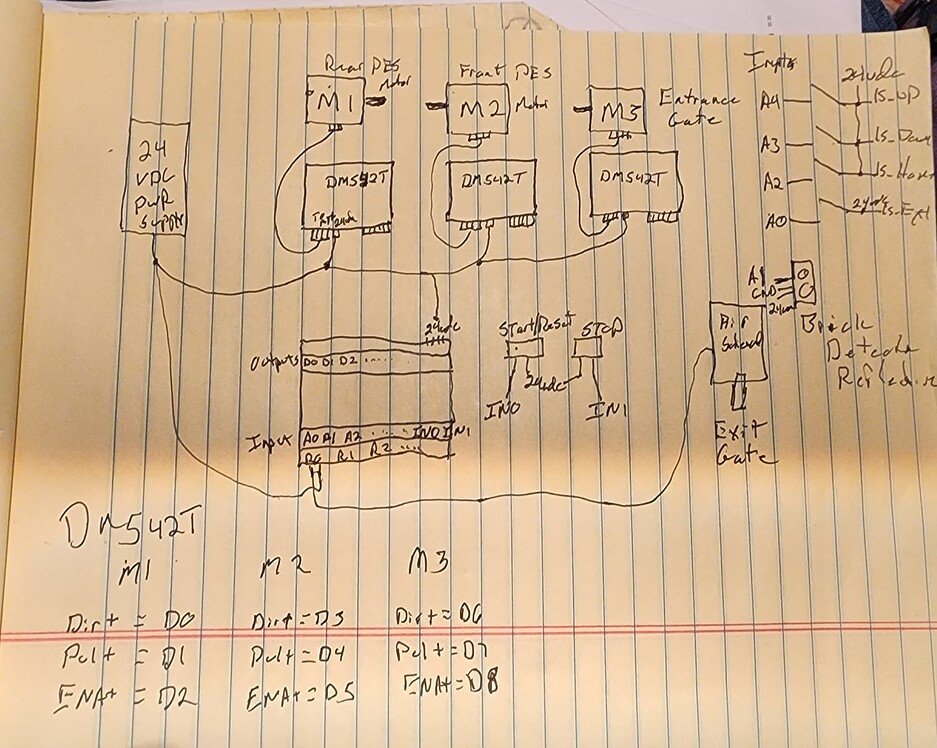 Rear PES
Motor
M1
Front PES
Motor
M2
M3
Entrance
Gate
Inputs
24vdc
A4
A3
A2
A0
24
VDC
PWR
Supply
DM542T
DM542T
DM542T
24vdc
Outputs
D0 D1 D2 .....
Input
A0 A1 A2 .... IN0 IN1
R0 R1 R2 ....
Start/Reset
STOP
24vdc
IN0
IN1
A1
GND
24vdc
Air
Brick
Reflective
Exit
Gate
DM542T
M1
M2
M3
Dir+ = D0
Dir+ = D3
Dir+ = D6
Pul+ = D1
Pul+ = D4
Pul+ = D7
ENA+ = D2
ENA+ = D5
ENA+ = D8